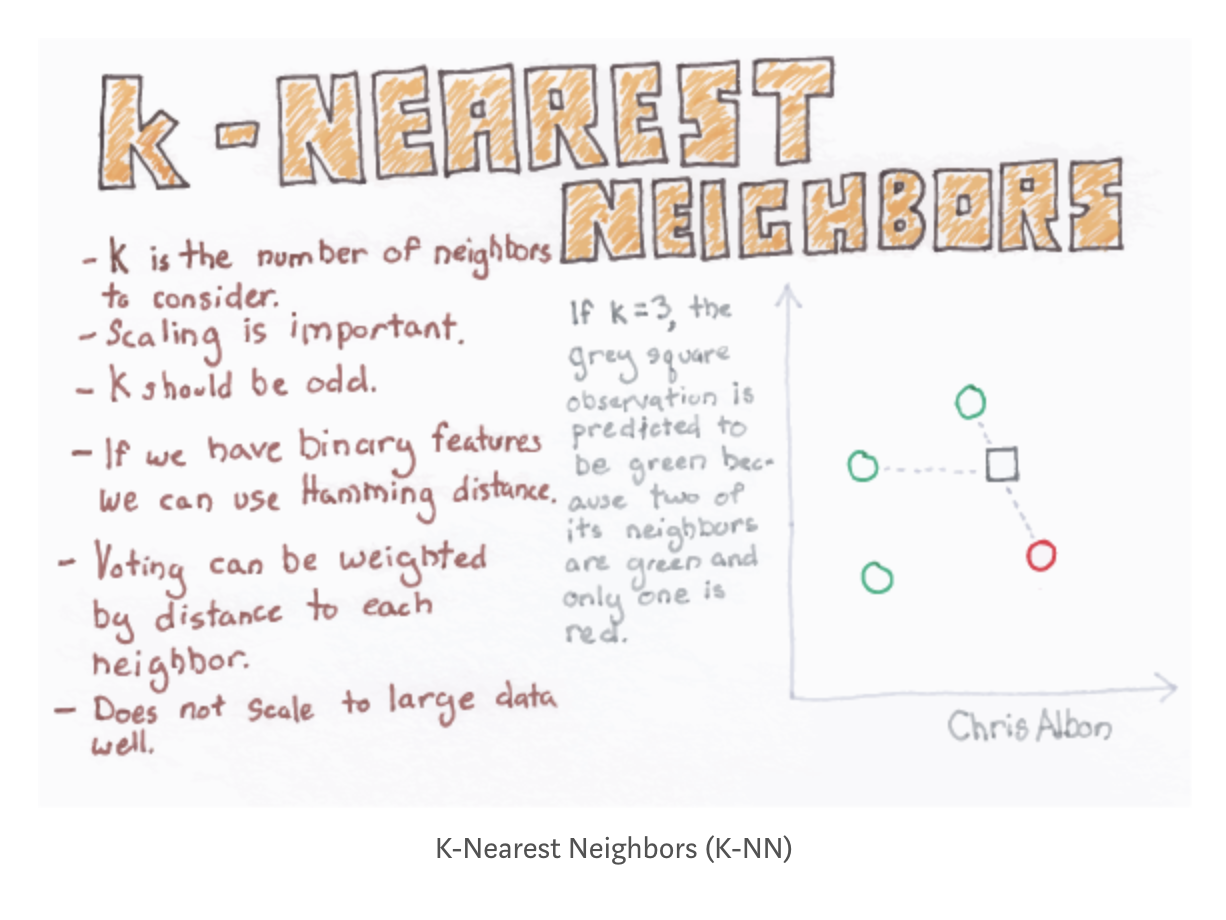 k-NEAREST
NEIGHBORS
- K is the number of neighbors
to consider.
- Scaling is important.
- K should be odd.
- If we have binary features
we can use Hamming distance.
- Voting can be weighted
by distance to each
neighbor.
- Does not scale to large data
well.
If k=3, the
grey square
observation is
predicted to
be green bec-
ause two of
its neighbors
are green and
only one is
red.
Chris Albon
K-Nearest Neighbors (K-NN)